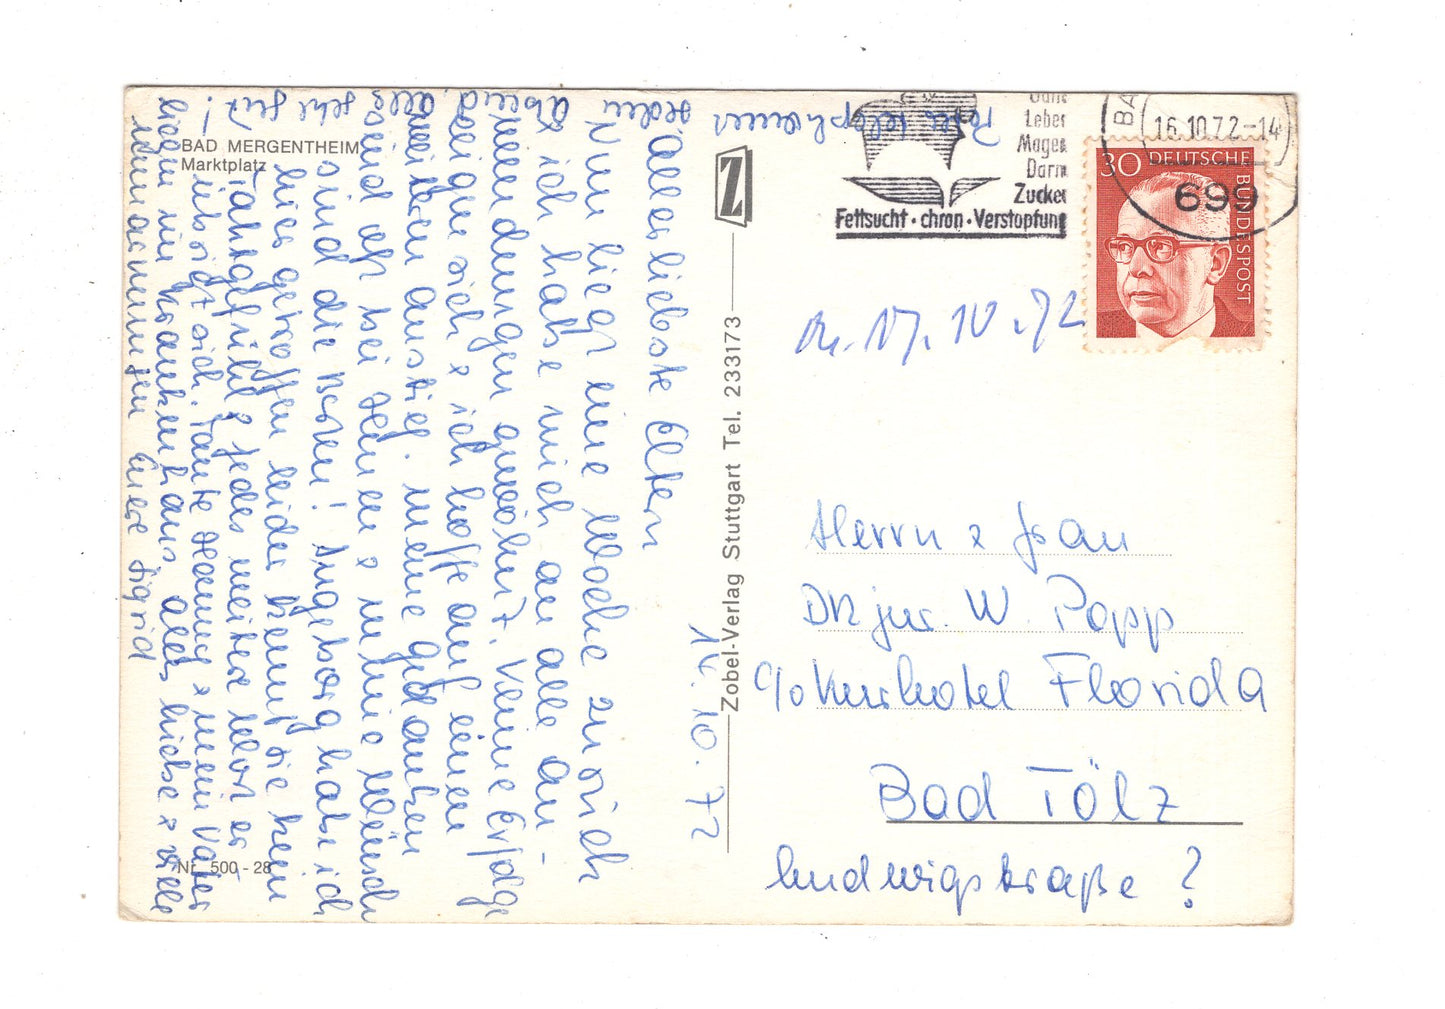 BAD MERGENTHEIM
Marktplatz
14. 10. 72
Allerliebste Eltern
Nun liegt eine Woche zurück
& ich habe mich an alle An-
wendungen gewöhnt. Kleine Erfolge
zeigen sich & ich hoffe auf einen
weiteren Anstieg. Meine Gedanken
sind oft bei Ihnen & meine Wünsche
sind die Besten! Ingeborg habe ich
hier getroffen leider kennt sie kein
Taktgefühl & jedes weitere Wort er
übrigt sich. Tante Hanny & mein Vater
liegen im Krankenhaus alles Liebe & viele
Umarmungen Eure Sigrid
Peter telephoniert jeden Abend, alles sehr gut!
Nr. 500 - 28
Zobel-Verlag Stuttgart Tel. 233173
Z
Leber
Magen
Darm
Zucker
Fettsucht · chron · Verstopfung
BA
16.10.72-14
699
30 DEUTSCHE
BUNDESPOST
17. 10. 72
Herrn & Frau
Dr jur. W. Popp
c/o Kurhotel Florida
Bad Tölz
Ludwigstraße ?